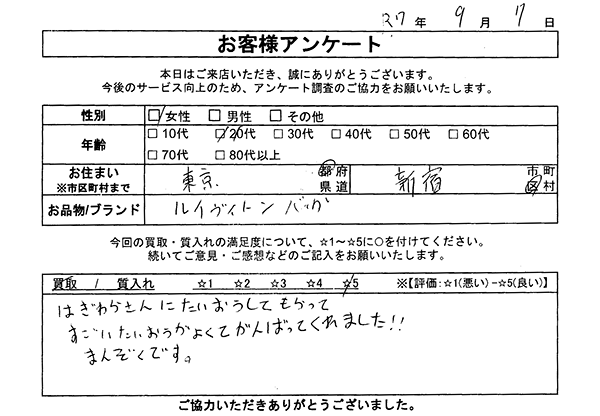 R7年 9月 7日
お客様アンケート
本日はご来店いただき、誠にありがとうございます。
今後のサービス向上のため、アンケート調査のご協力をお願いいたします。
性別 □女性 □男性 □その他
年齢 □10代 □20代 □30代 □40代 □50代 □60代
□70代 □80代以上
お住まい ※市区町村まで 東京 都府県道 新宿 市町区村
お品物/ブランド ルイヴィトン バッグ
今回の買取・質入れの満足度について、☆1～☆5に○を付けてください。
続いてご意見・ご感想などのご記入をお願いいたします。
買取 / 質入れ ☆1 ☆2 ☆3 ☆4 ☆5 ※【評価:☆1(悪い)-☆5(良い)】
はぎわらさんにたいおうしてもらって
すごいたいおうがよくてがんばってくれました!!
まんぞくです。
ご協力いただきありがとうございました。